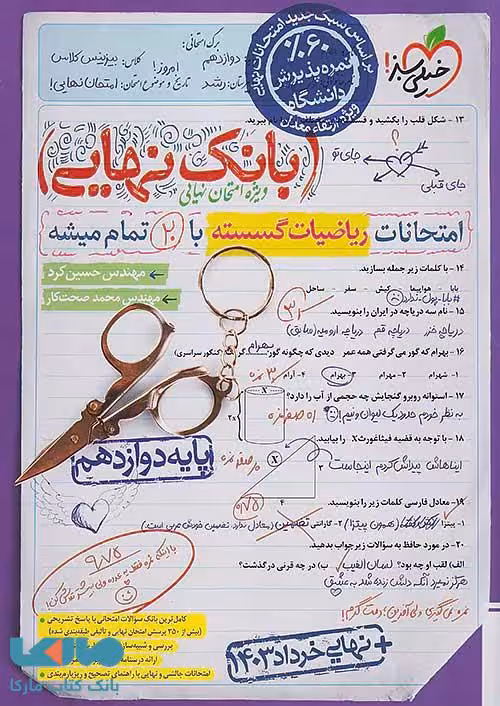 برگ امتحانی:
دوازدهم
کلاس: بیزنس کلاس
امروز!
رشد
تاریخ و موضوع امتحان: امتحان نهایی!
بر اساس سبک جدید امتحانات نهایی
٪۶۰
نمره پذیرش
دانشگاه
ویژه ارتقاء معدل
خیلی سبز!
۱۳ - شکل قلب را بکشید و
ببرید.
؟
جای تو
جای قبلی
(بانک نهایی)
ویژه امتحان نهایی
امتحانات ریاضیات گسسته با ۲۰ تمام میشه
۱۴ - با کلمات زیر جمله بسازید.
بابا - هواپیما - کیش - سفر - ساحل
#بابا-پول-ندارد
مهندس حسین کرد
مهندس محمد صحت‌کار
۱۵ - نام سه دریاچه در ایران را بنویسید.
دریاچه خزر دریاچه قم دریاچه ارومیه (سابق)
۱۶ - بهرام که گور می گرفتی همه عمر دیدی که چگونه گور بهرام گرفت (کنکور سراسری)
۱ - شهرام ۲ - بهرام ۳ - بهرام ۴ - آرام
۱۷ - استوانه روبرو گنجایش چه حجمی از آب را دارد؟
به نظر خودم حدود یک لیوان و نیم!
X
۲x
۱۸ - با توجه به قضیه فیثاغورث X را بیابید.
ایناهاش پیداش کردم اینجاست
X
۳
۴
پایه دوازدهم
۱۹ - معادل فارسی کلمات زیر را بنویسید.
۱ - پیتزا (همون پیتزا) ۲ - گارانتی
۲۰ - در مورد حافظ به سؤالات زیر جواب بدهید.
الف) لقب او چه بود؟ لسان الغیب ب) در چه قرنی درگذشت؟
هرگز نمیرد آنکه دلش زنده شد به عشق
۹/۷۵
کامل‌ترین بانک سؤالات امتحانی با پاسخ تشریحی
(بیش از ۲۵۰ پرسش امتحان نهایی و تألیفی طبقه‌بندی شده)
امتحانات چالشی و نهایی با راهنمای تصحیح و ریزبارم‌بندی
+نهایی خرداد ۱۴۰۳
مارکا
بانک کتاب مارکا